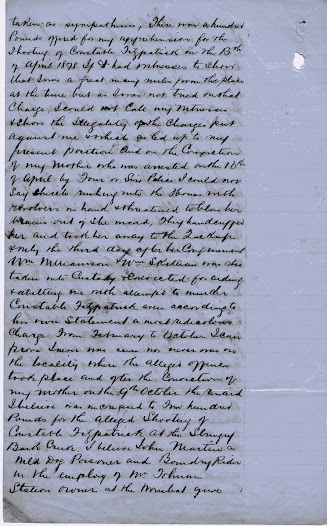 taken as sympathisers, There was a hundred
Pounds offered for my apprehension for the
Shooting of Constable Fitzpatrick on the 15th
of April 1878. If I had witnesses to Shew
that I was a great many miles from the place
at the time but as I was not tried on that
Charge I could not Call my Witnesses
& Shew the Illegality of the Charges put
against me & which led up to my
present position and on the Conviction
of my Mother who was arrested on the 16th
of April by Four or Six Police I could not
Say which rushing into the House with
revolvers in hand & threatened to blow her
brains out if She moved, They handcuffed
her and took her away to the Lockup
& only the third day after her Confinement
Wm Williamson & Wm Skillian was also
taken into Custody & Convicted for aiding
& abetting me with attempt to murder
Constable Fitzpatrick even according to
his own Statement a most ridiculous
Charge From February to October I can
prove I never was seen nor ever was in
the locality where the alleged offence
took place and after the Conviction of
my Mother on the 9th October the reward
I believe was increased to Two hundred
Pounds for the Alleged Shooting of
Constable Fitzpatrick at the Stringy
Bark Creek I believe John Martin a
Wild Dog Poisoner and Boundry Rider
in the employ of Mr Tolmie
Station owner at the Wombat gave